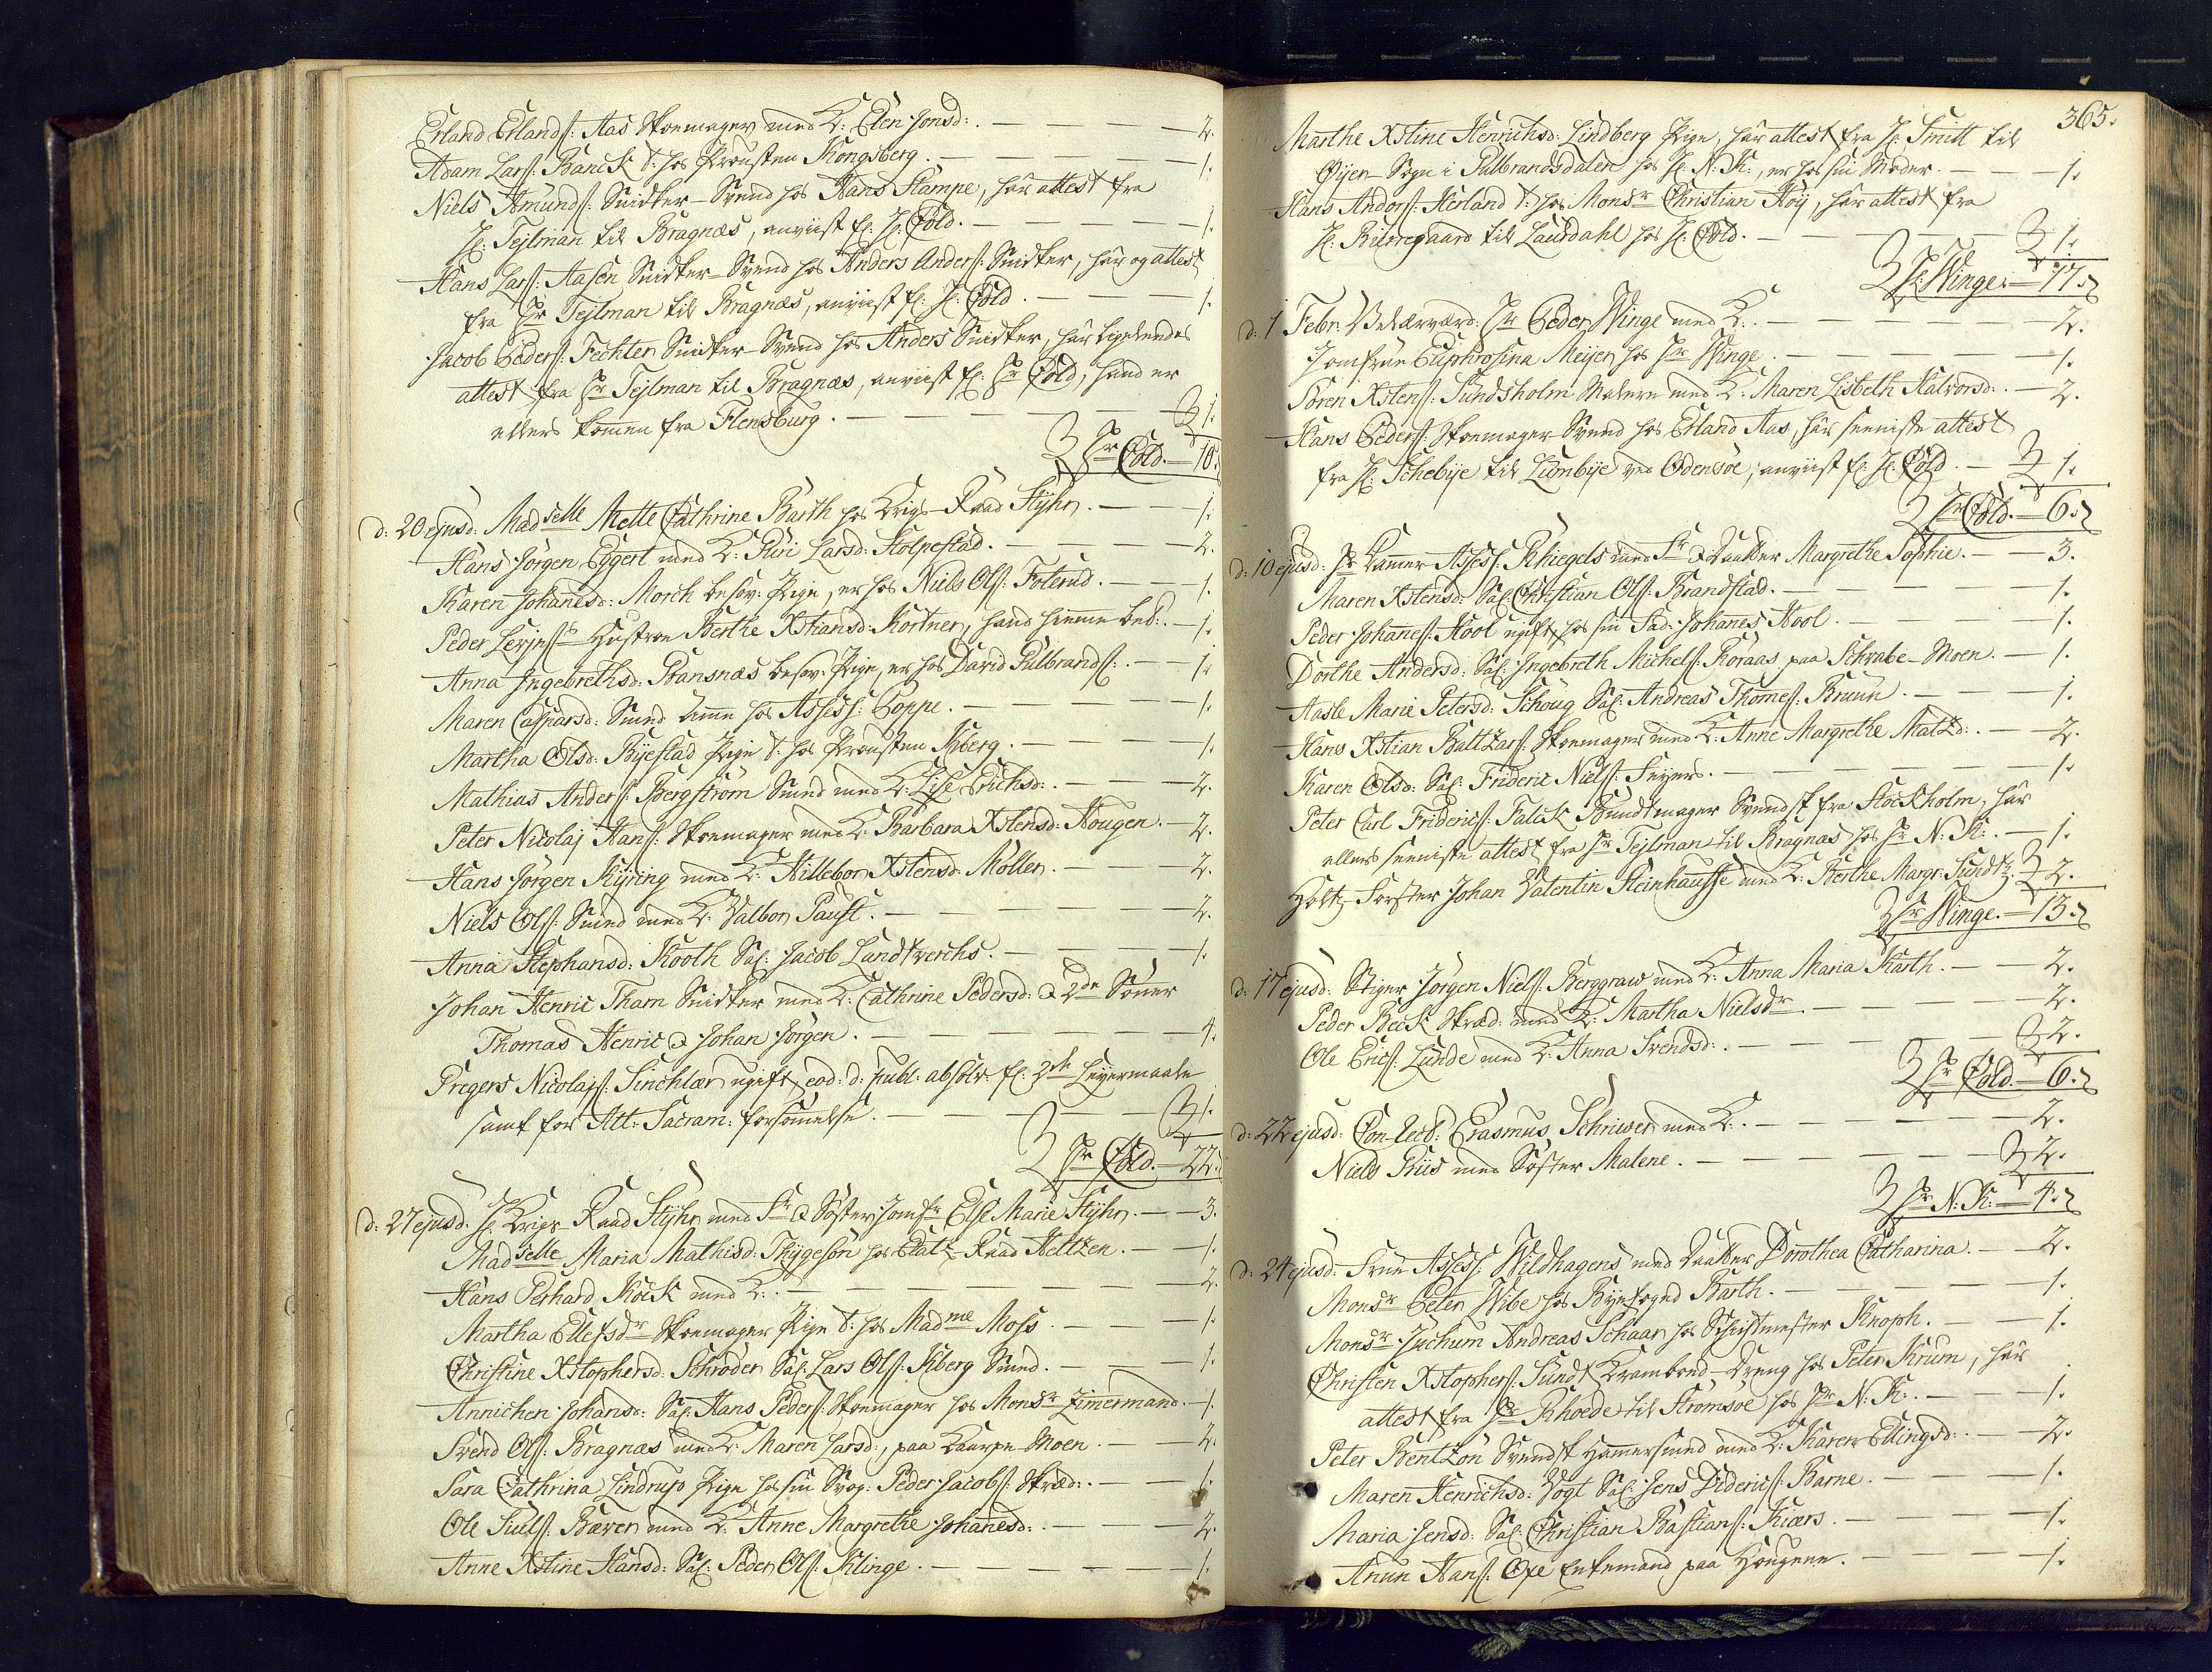 Erland Erlandss: Aas Skoemager med K: Elen Jonsd: . — 2.
Adam Larss: Banck t: hos Provsten Kongsberg. — 1.
Niels Amundss: Snidker-Svend hos Hans Stampe, har attest fra
Hr: Tejlman til Bragnæs, anviist fr: Hr: Cold. — 1.
Hans Larss: Aasen Snidker-Svend hos Anders Anderss: Snidker, har og attest
fra Hr Tejlman til Bragnæs, anviist fr: Hr: Cold. — 1.
Jacob Pederss: Fechter Snidker-Svend hos Anders Snidker, har ligeledes
attest fra Hr Tejlman til Bragnæs, anviist fr: Hr Cold, hand er
ellers kommen fra Flensburg. — 1.
Hr Cold. — 10.
d: 20 ejusd: Madselle Mette Cathrine Barth hos Krigs-Raad Stÿhr. — 1.
Hans Jørgen Eggert med K: Siri Larsd: Stolpestad. — 2.
Karen Johannesd: Morch besov: Pige, er hos Niels Olss: Foterud. — 1.
Peder Hustroe Berthe Xstiansd: Kortner, hans hiemme bed: . — 1.
Anna Ingebrethsd: Stansnæs besov: Pige, er hos David Gulbrandss: . — 1.
Maren Casparsd: Smed Amme hos Assess: Coppe. — 1.
Martha Olsd: Bÿestad Pige t: hos Provsten Kiberg. — 1.
Mathias Anderss: Bergstrøm Smed med K: Lise Erichsd: . — 2.
Peter Nicolaj Hanss: Skoemager med K: Barbara Xstensd: Hougen. — 2.
Hans Jørgen Kÿring med K: Hillebor Xstensd: Møller. — 2.
Niels Olss: Smed med K: Valbor Paust. — 2.
Anna Stephansd: Kooth Sal: Jacob Landtverchs. — 1.
Johan Henric Tharn Snidker med K: Cathrine Pedersd: & 2de Sønner
Thomas Henric & Johan Jørgen. — 4.
Gregers Nicolajss: Sinchlær ugift, eod: d: publ: absolv: fr: 2de Leyermaale
samt for Alt: Sacram: forsømmelse. — 1.
Hr Cold. — 22.
d: 27 ejusd: Hr Krigs-Raad Stÿhr med Fr & Søster Jomfr Else Marie Stÿhr. — 3.
Madselle Maria Mathisd: Thÿgeson hos Etatz-Raad Heltzen. — 1.
Hans Gerhard Kock med K: . — 2.
Martha Ellefsdr Skoemager Pige t: hos Madme Moss. — 1.
Christine Xstophersd: Schrøder Sal: Lars Olss: Kiberg Smed. — 1.
Annichen Johansd: Sal: Hans Pederss: Skoemager hos Monsr Zimermand. — 1.
Svend Olss: Bragnæs med K: Maren Larsd:, paa Moen. — 2.
Sara Cathrina Lindrup Pige hos sin Svog: Peder Jacobss: Skræd: . — 1.
Ole Siulss: Bæver med K: Anne Margrethe Johannesd: . — 2.
Anne Xstine Hansd: Sal: Peder Olss: Klinge. — 1.
365.
Marthe Xstine Henrichsd: Lindberg Pige, har attest fra Hr: Smitt til
Øijer-Sogn i Gulbrandsdalen hos Hr: N: K:, er hos sin Moder. — 1.
Hans Anderss: Herland t: hos Monsr Christian Høÿ, har attest fra
Hr: til Laurdahl hos Hr: Cold. — 1.
Hr: Winge. — 17.
d: 1 Febr: Velærværd: Hr Peder Winge med K: . — 2.
Jomfrue Euphrosina Meÿer hos Hr Winge. — 1.
Søren Xstenss: Sundsholm Malere med K: Maren Lisbeth Halvorsd: . — 2.
Hans Pederss: Skoemager-Svend hos Erland Aas, har seeniste attest
fra Hr: Schebÿe til Lumbÿe ved Odensøe, anviist fr: Hr: Cold. — 1.
Hr Cold. — 6.
d: 10 ejusd: Hr Kammer Assess: Rhiegels med Fr & Daatter Margrethe Sophie. — 3.
Maren Xstensd: Sal: Christian Olss: Brandstad. — 1.
Peder Johanness: Hool ugift, hos sin Fad: Johannes Hool. — 1.
Dorthe Andersd: Sal: Ingebreth Michelss: Koraas paa Schrabe-Moen. — 1.
Aasle Marie Petersd: Schoug Sal: Andreas Thomess: Bruun. — 1.
Hans Xstian Baltzarss: Skoemager med K: Anne Margrethe Matzd: . — 2.
Karen Olsd: Sal: Frideric Nielss: Feijers. — 1.
Peter Carl Fridericss: Falck Bundtmager Svendsk fra Stockholm, har
ellers seeniste attest fra Hr Tejlman til Bragnæs hos Hr N: K: . — 1.
Holtz-Førster Johan Valentin Steinhausse med K: Berthe Margr: Sundt. 2.
Hr Winge. — 13.
d: 17 ejusd: Stiger Jørgen Nielss: Berggraw med K: Anna Maria Karth. — 2.
Peder Beck Skræd: med K: Martha Nielsdr. — 2.
Ole Ericss: Lunde med K: Anna Svendsd: . — 2.
Hr Cold. — 6.
d: 22 ejusd: Con-Rect: Erasmus Schriwer med K: . — 2.
Niels Riis med Søster Malene. — 2.
Hr N: K: — 4.
d: 24 ejusd: Frue Assess: Wildhagens med Daatter Dorothea Catharina. — 2.
Monsr Peter Wibe hos Bÿefogd Barth. — 1.
Monsr Juchum Andreas Schaar hos Schichtmester Knoph. — 1.
Christen Xstopherss: Sundt Krambod-Dreng hos Peter Krum, har
attest fra Hr Rhoede til Strømsøe hos Hr N: K: . — 1.
Peter Bentzon Svendsk Hammersmed med K: Karen Ellingsd: . — 2.
Maren Henrichsd: Vogt Sal: Jens Didericss: Barne. — 1.
Maria Jensd: Sal: Christian Bastianss: Kiærs. — 1.
Anun Hanss: Oxe Enkemand paa Hougene. — 1.